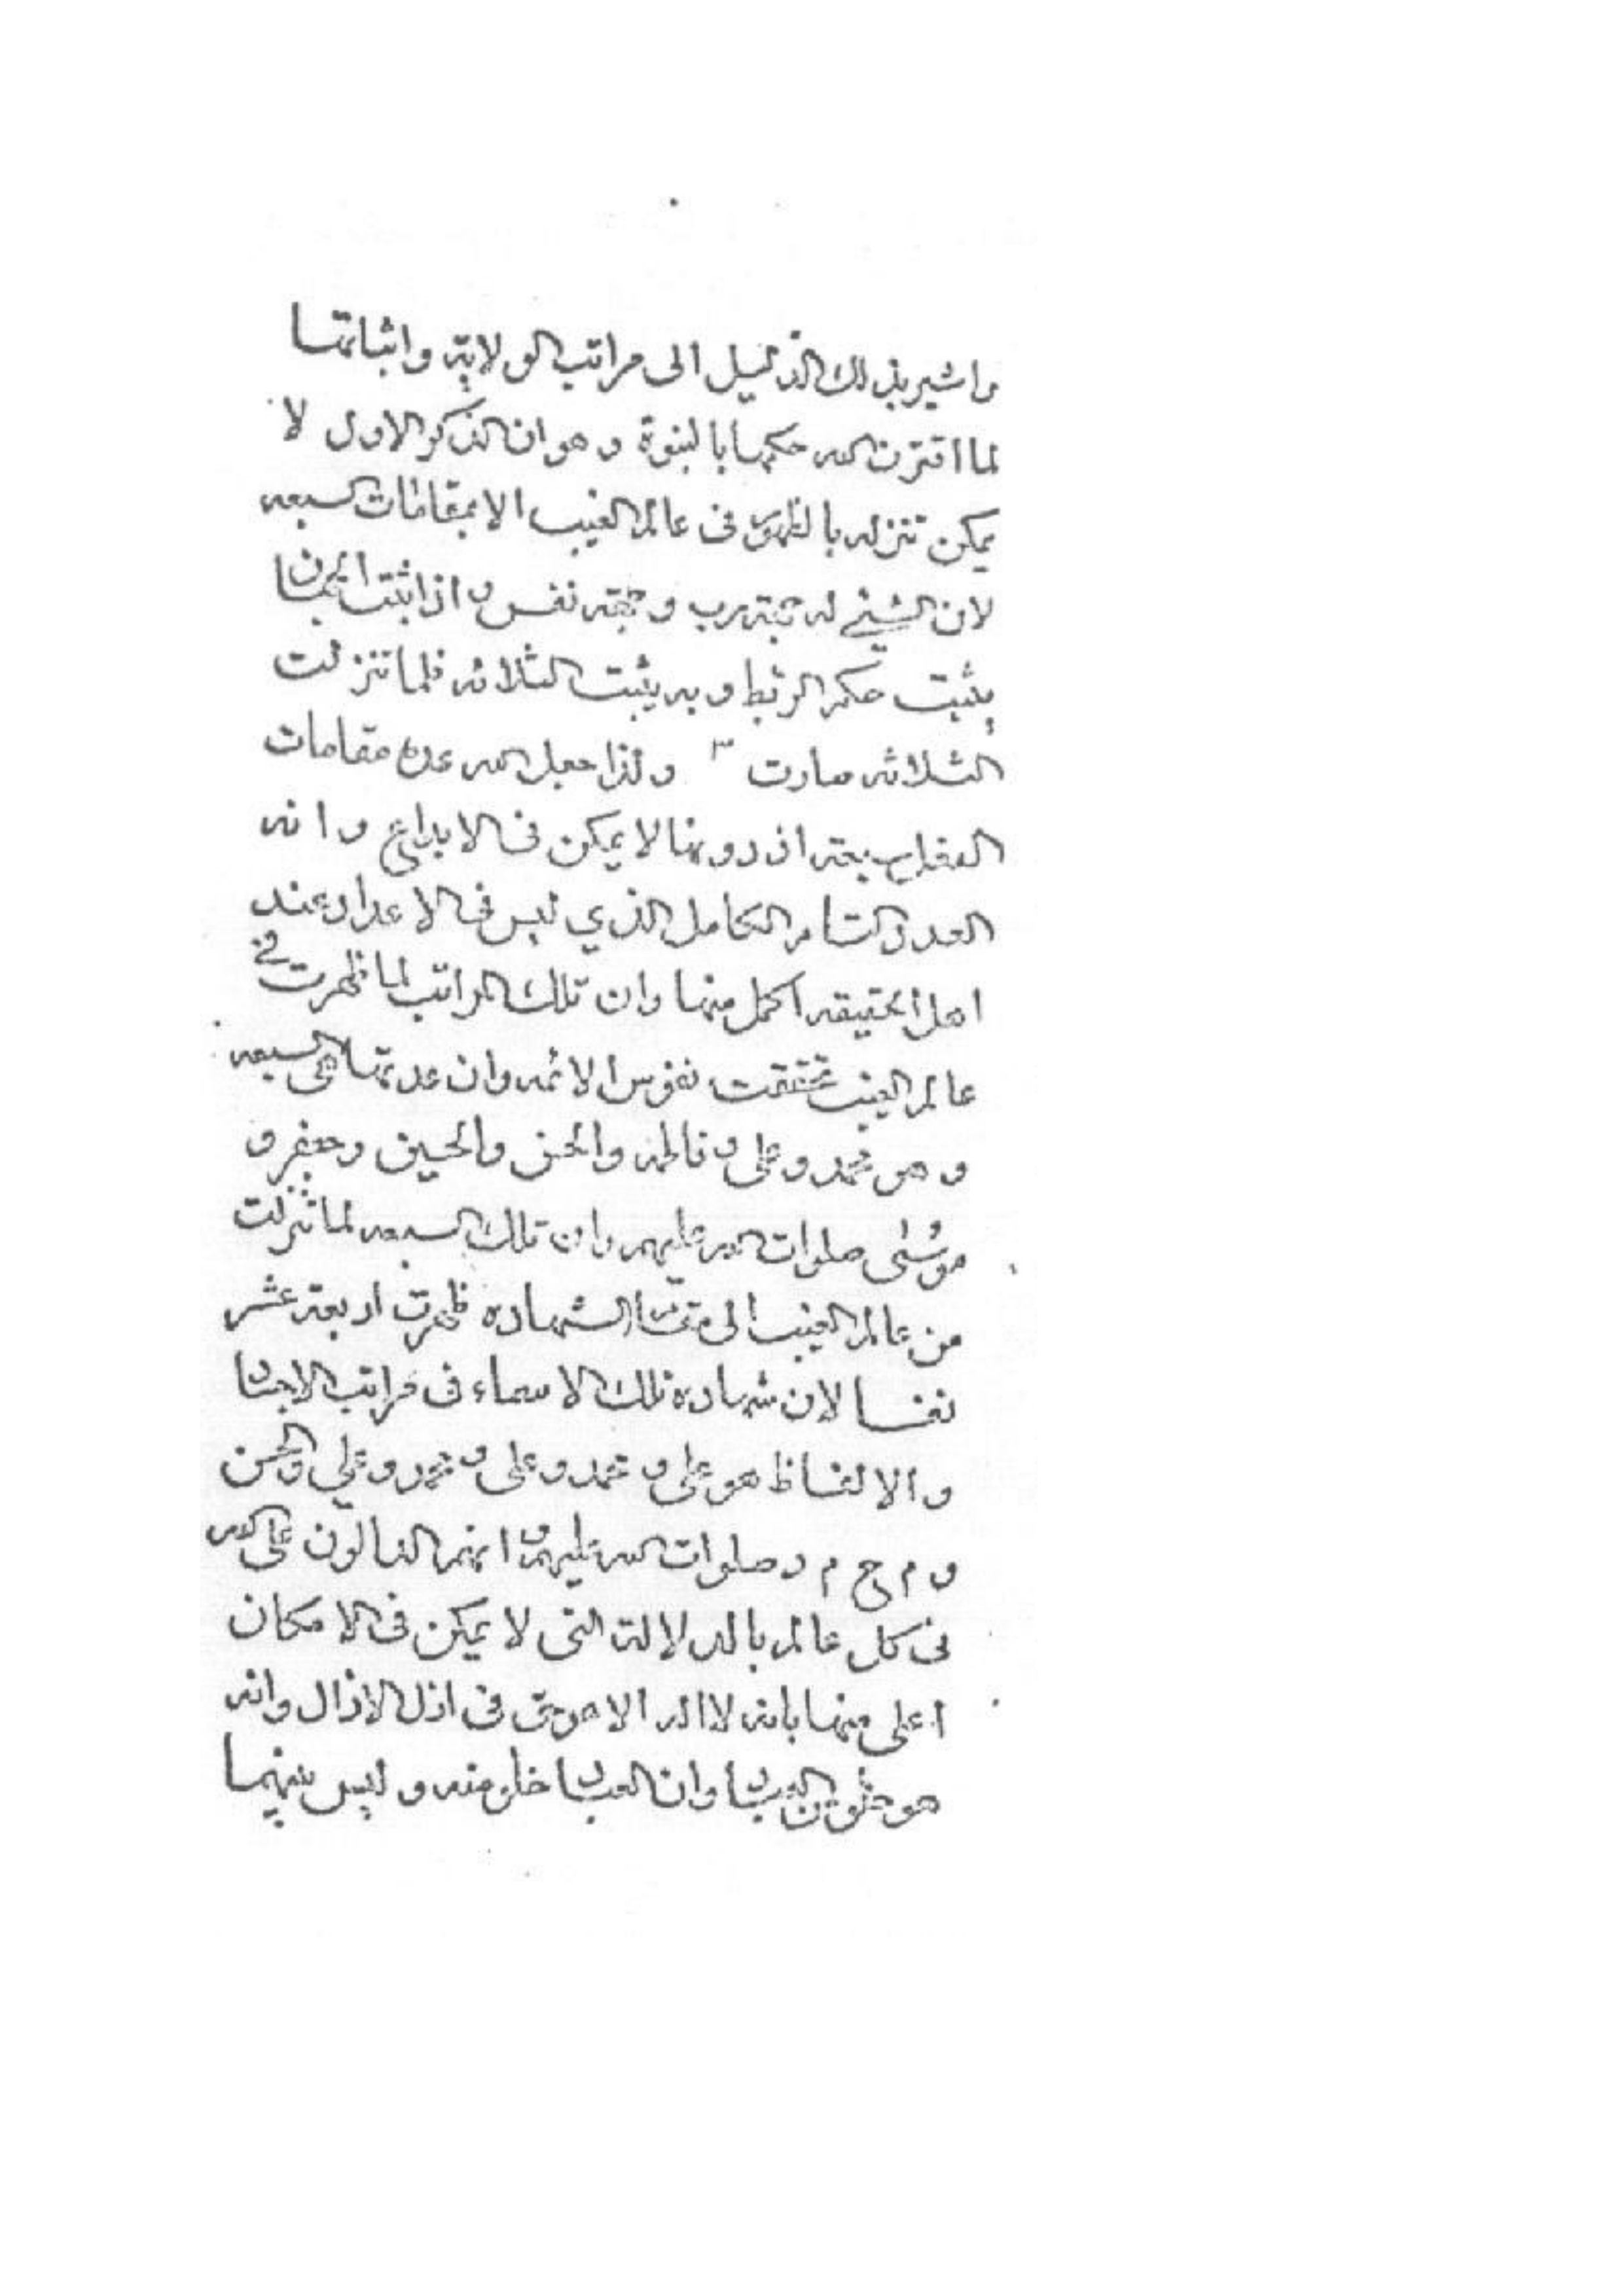 واشير بذلك الدليل الى مراتب الولاية واثباتها
لما اقترن الله حكمها بالنبوة و هو ان الذكر الاول لا
يمكن تنزله بالظهور فى عالم الغيب الا بمقامات السبعه
لان الشيئ له جهة رب و جهة نفس و اذا ثبت الجهتان
يثبت حكم الربط و به يثبت الثلاثه فلما تنزلت
الثلاثه صارت و لذا جعل الله عدة مقامات
الفعل سبعة اذ دونها لا يمكن فى الابداع و انه
العدد التام الكامل الذي ليس فى الاعداد عند
اهل الحقيقه اكمل منها و ان تلك المراتب لما ظهرت فى
عالم الغيب تحققت نفوس الائمه و ان عدتها هى السبعه
و هو محمد و على و فاطمه والحسن والحسين و جعفر و
موسى صلوات الله عليهم و ان تلك السبعه لما تنزلت
من عالم الغيب الى مقام الشهاده ظهرت اربعة عشر
نفسا لان شهاده تلك الاسماء فى مراتب الاجساد
و الالفاظ هو على و محمد و على و محمد و على والحسن
و م ح م د صلوات الله عليهم و انهم الدالون على الله
فى كل عالم بالدلالة التى لا يمكن فى الامكان
اعلى منها بانه لا اله الا هو حق فى ازل الازال و انه
هو خلو من العباد و ان العباد خلو منه و ليس بينهما